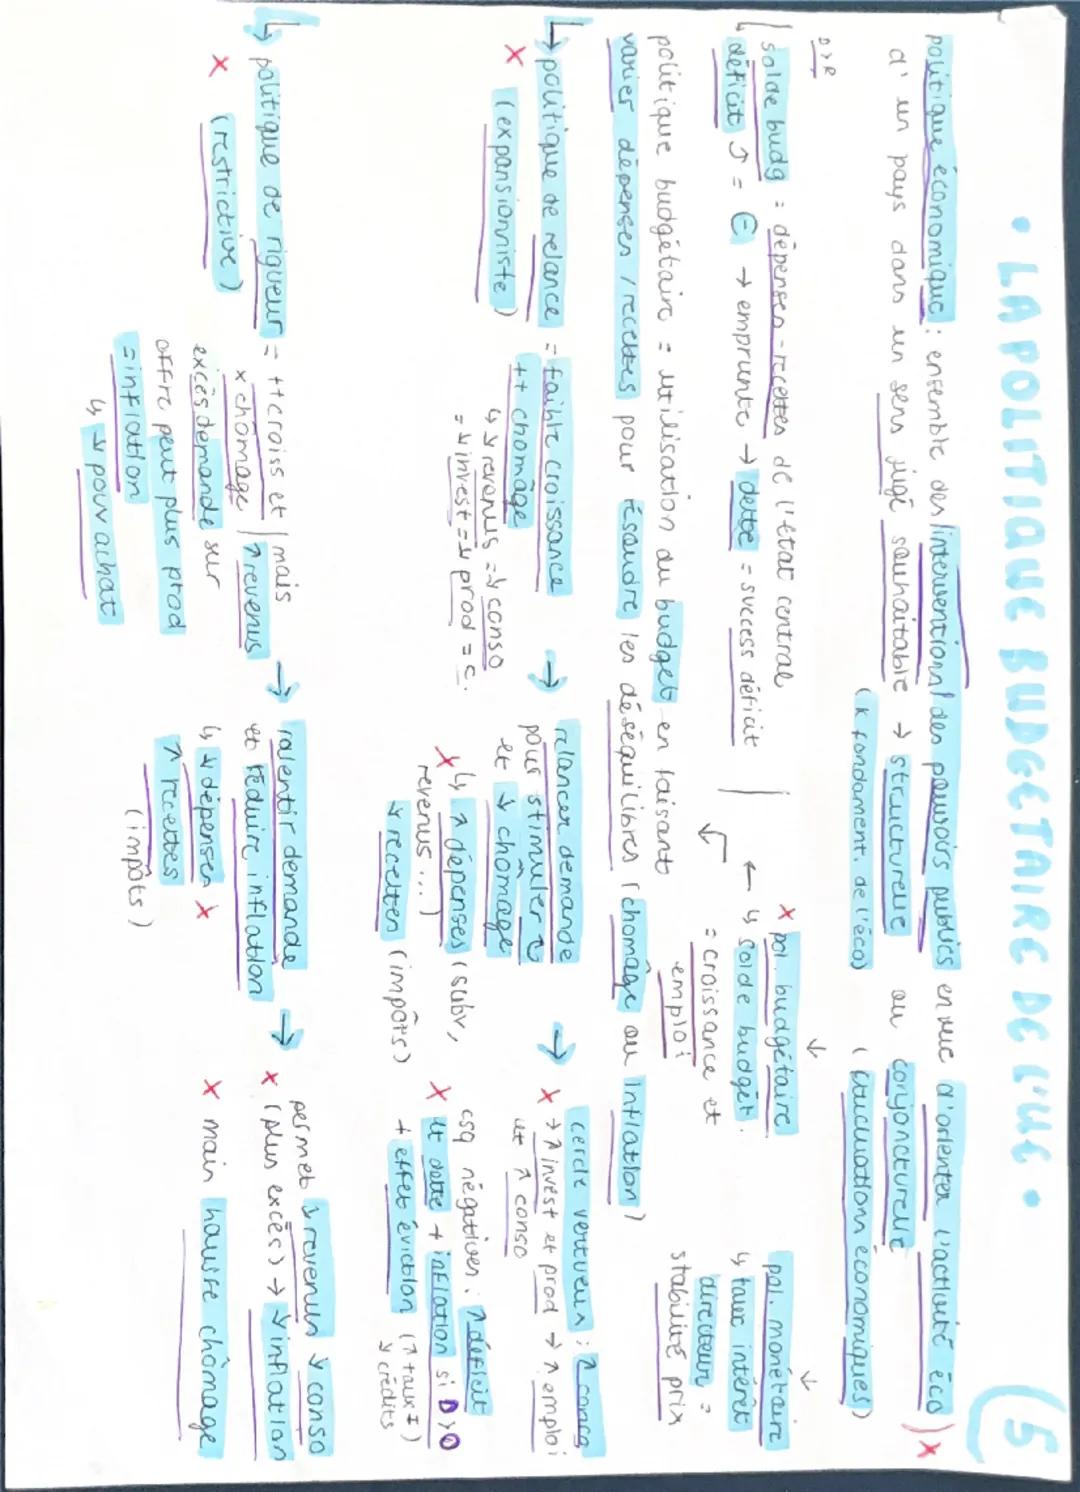 • LA POLITIQUE BUDGETAIRE DE L'UE •
5
politique économique : ensemble des interventions des pouvoirs publics en vue d'orienter l'activité éco x
d'un pays dans un sens jugé souhaitable → structurelle ou conjoncturelle
(k fondament. de l'éco) (fluctuations économiques)
D>R
solde budg = dépenses-recettes de l'Etat central
↳ déficit ↑ = € → emprunte → dette = success déficit
x pol. budgétaire
↳ solde budgét.
= croissance et
emploi
pol. monétaire
↳ taux intérêt
directeur =
stabilité prix
politique budgétaire = utilisation du budget en faisant
varier dépenses / recettes pour résoudre les déséquilibres (chomage ou inflation)
↳ politique de relance = faible croissance → relancer demande → cercle vertueux : ↑ conso
x (expansionniste)
++ chomage
↳ ↘ revenus = ↘ conso
= ↘ invest = ↘ prod = c.
pour stimuler c
et ↘ chomage
x ↳ ↑ dépenses (subv,
revenus ...)
↘ recettes (impôts)
x → ↑ invest et prod → ↑ emploi
et ↑ conso
csq négatives : ↑ déficit
x et dette + inflation si D>O
+ effet éviction (↑ taux I)
↘ crédits
↳ politique de rigueur = ++ croiss et mais → ralentir demande → permet ↘ revenus ↘ conso
x (restrictive)
x chômage ↑ revenus
excès demande sur
offre peut plus prod
= inflation
↳ ↘ pouv achat
et réduire inflation
↳ ↘ dépenses x
↑ recettes
(impôts)
x (plus excès) → ↘ inflation
x mais hausse chômage